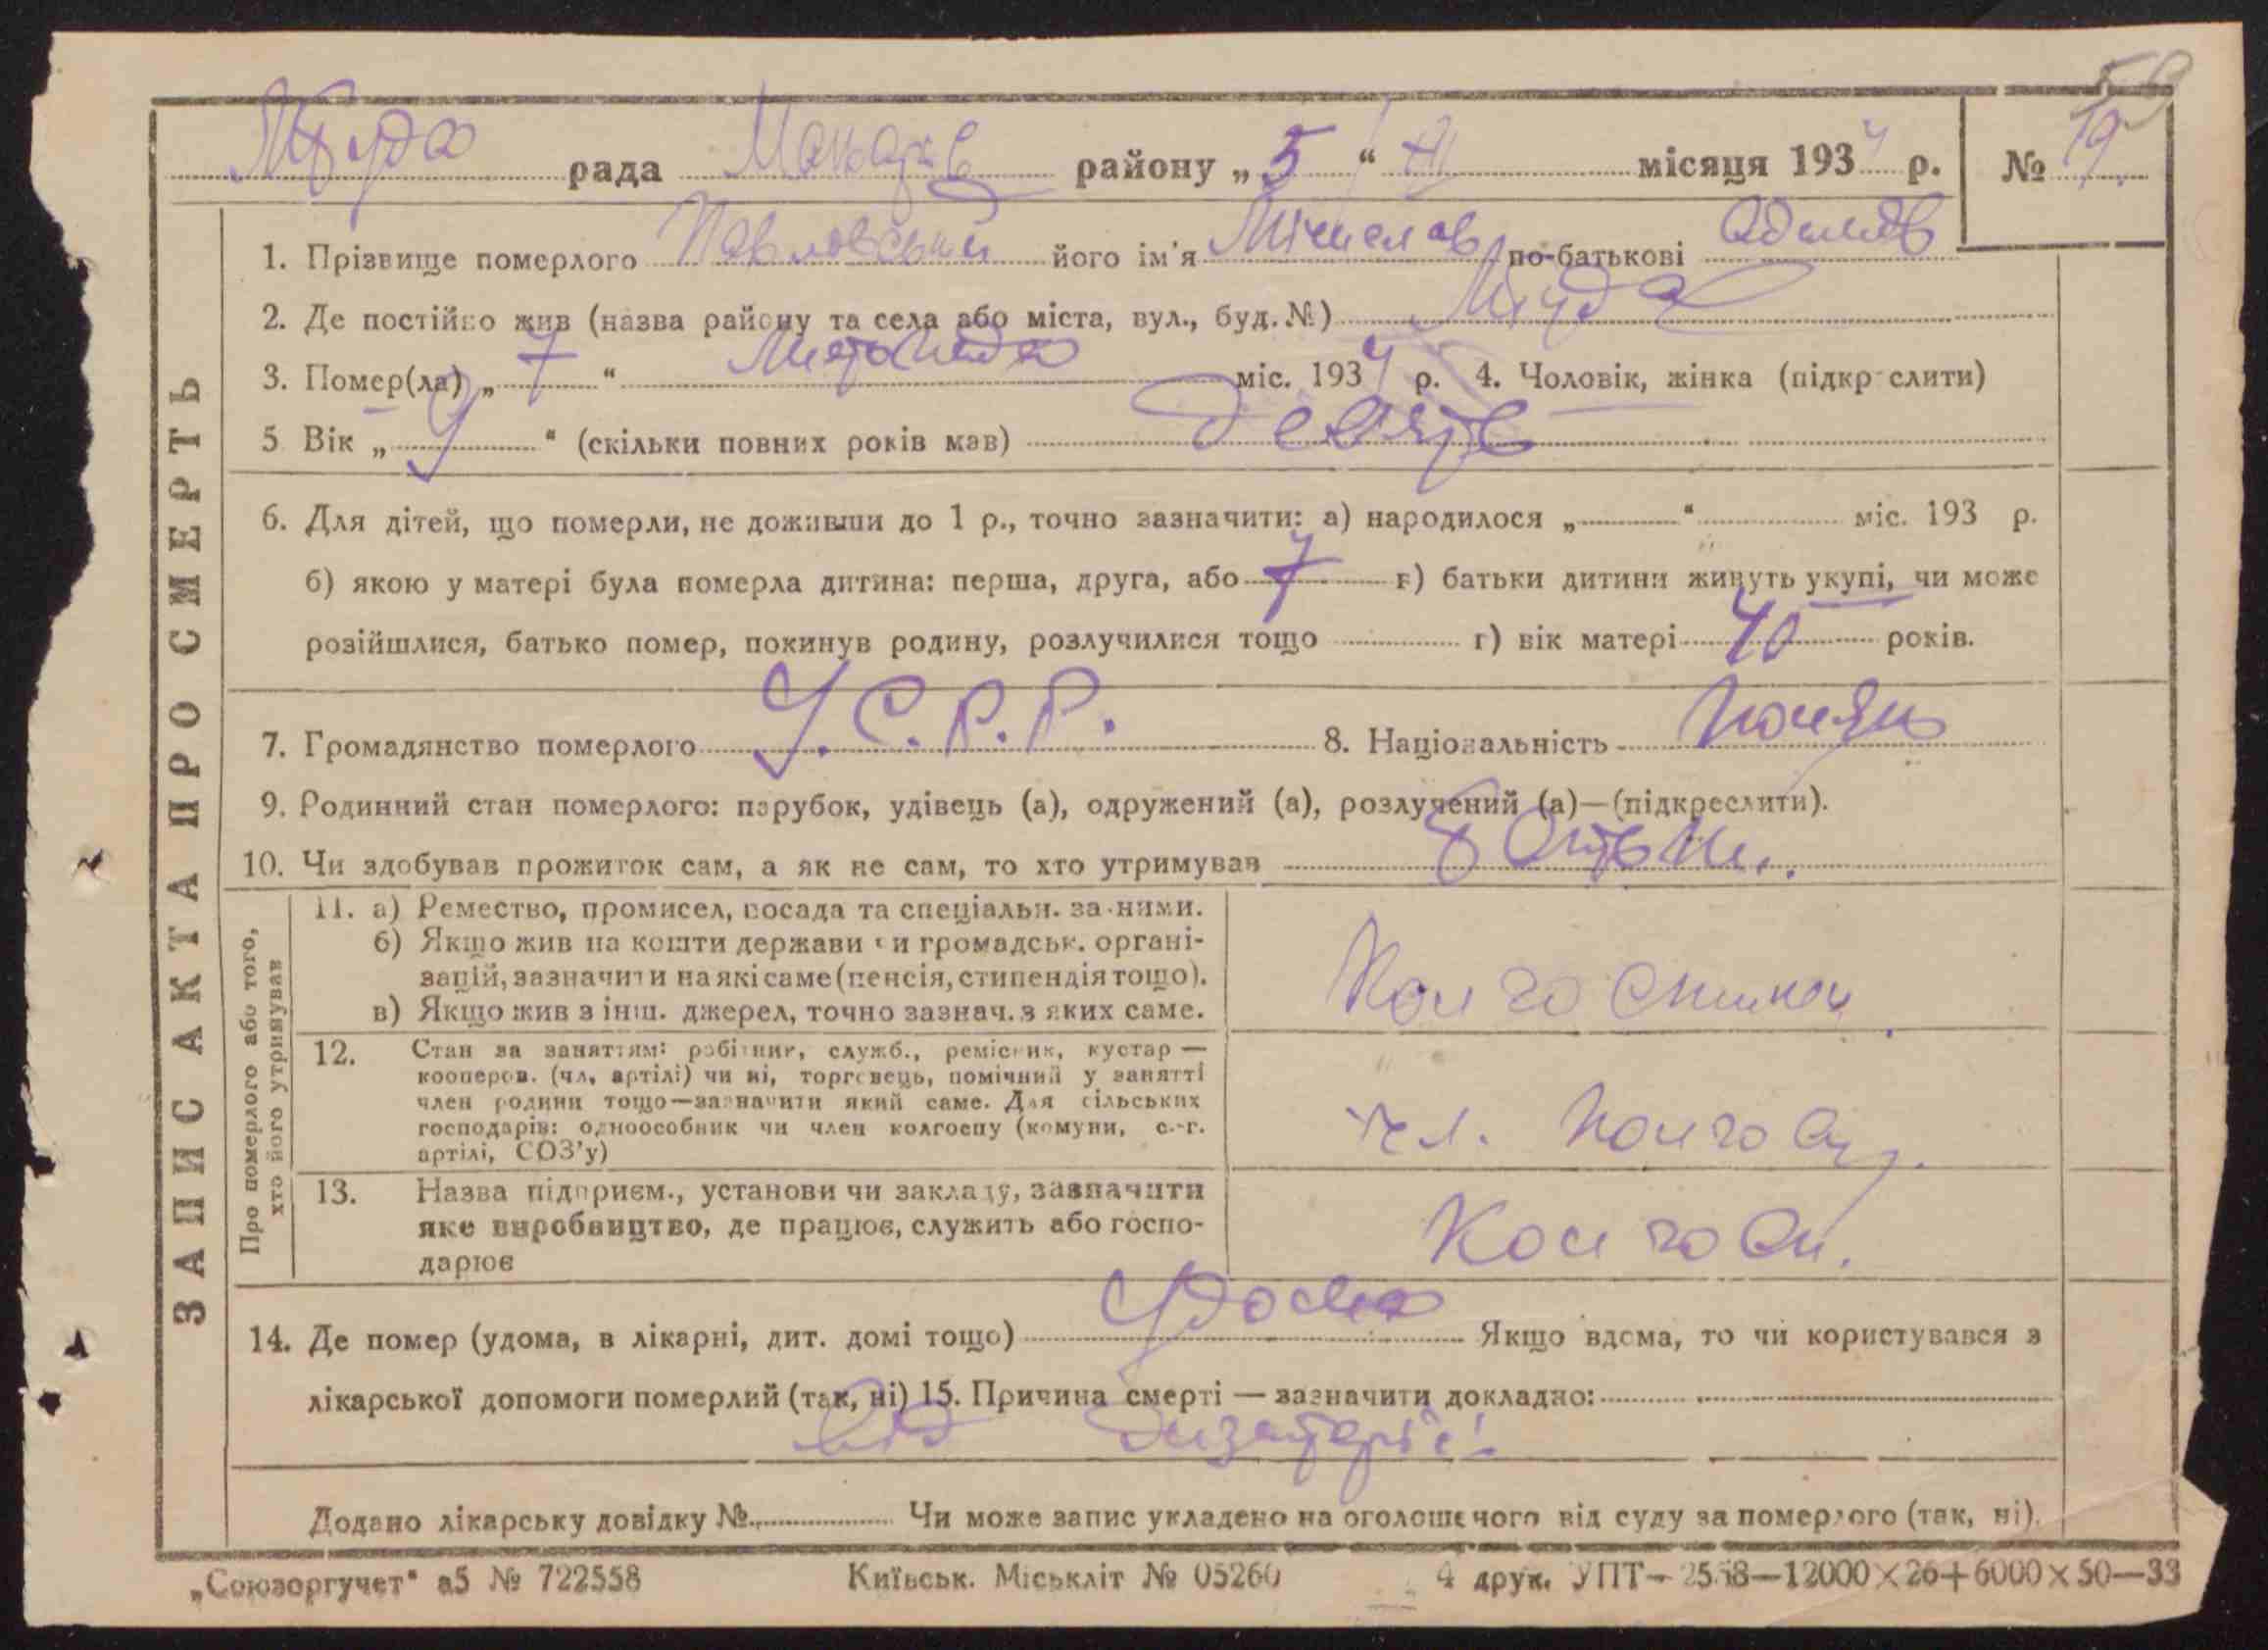 58
Мгуда рада Макарів району „5“ XI місяця 1934 р. № 19.
1. Прізвище померлого Павловський його ім'я по-батькові
2. Де постійно жив (назва району та села або міста, вул., буд. №)
3. Помер(ла) „7“ Листопада міс. 1934 р. 4. Чоловік, жінка (підкреслити)
5 Вік „9“ (скільки повних років мав) девять
6. Для дітей, що померли, не доживши до 1 р., точно зазначити: а) народилося „ “ міс. 193 р.
б) якою у матері була померла дитина: перша, друга, або 7 в) батьки дитини живуть укупі, чи може
розійшлися, батько помер, покинув родину, розлучилися тощо г) вік матері 40 років.
7. Громадянство померлого У.С.Р.Р. 8. Національність поляк
9. Родинний стан померлого: парубок, удівець (а), одружений (а), розлучений (а)—(підкреслити).
10. Чи здобував прожиток сам, а як не сам, то хто утримував батьки.
ЗАПИС АКТА ПРО СМЕРТЬ
Про померлого або того, хто його утримував
11. а) Ремество, промисел, посада та спеціальн. за ними.
б) Якщо жив на кошти держави чи громадськ. органі-
зацій, зазначити на які саме (пенсія, стипендія тощо).
в) Якщо жив з інш. джерел, точно зазнач. з яких саме.
Колгоспник
12. Стан за заняттям: робітник, служб., ремісник, кустар —
кооперов. (чл. артілі) чи ні, торговець, помічний у занятті
член родини тощо—зазначити який саме. Для сільських
господарів: одноособник чи член колгоспу (комуни, с.-г.
артілі, СОЗ'у)
чл. колгосу.
13. Назва підприєм., установи чи закладу, зазначити
яке виробництво, де працює, служить або госпо-
дарює
Колгосп.
14. Де помер (удома, в лікарні, дит. домі тощо) Удома Якщо вдома, то чи користувався з
лікарської допомоги померлий (так, ні) 15. Причина смерті — зазначити докладно:
від дизентерії
Додано лікарську довідку № Чи може запис укладено на оголошеного від суду за померлого (так, ні).
„Союзоргучет“ а5 № 722558 Київськ. Міськліт № 05260 4 друк. УПТ—2568—12000×26+6000×50—33